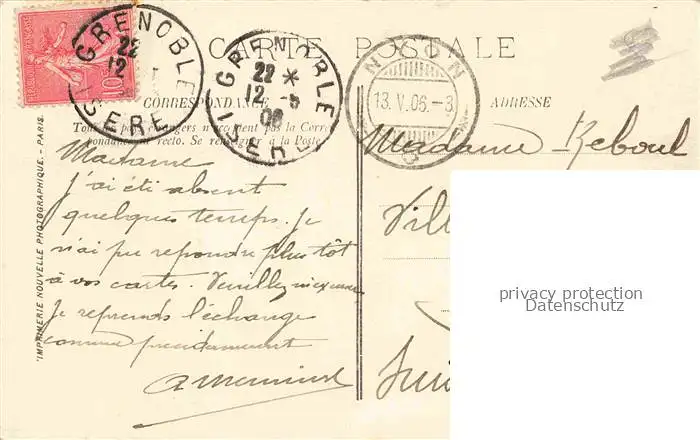 CARTE POSTALE
CORRESPONDANCE
ADRESSE
Tous les pays étrangers n'acceptent pas la Corres-
pondance au recto. Se renseigner à la Poste
GRENOBLE
22
12
ISERE
10c
GRENOBLE
22 *
12 -5
06
ISERE
NYON
13.V.06.-3
Madame
j'ai été absent
quelques temps. Je
n'ai pu repondre plus tôt
à vos cartes. Veuillez m'excuser
Je reprends l'échange
comme précédemment
Madame Reboul
Vill
Sui
IMPRIMERIE NOUVELLE PHOTOGRAPHIQUE - PARIS.
privacy protection
Datenschutz